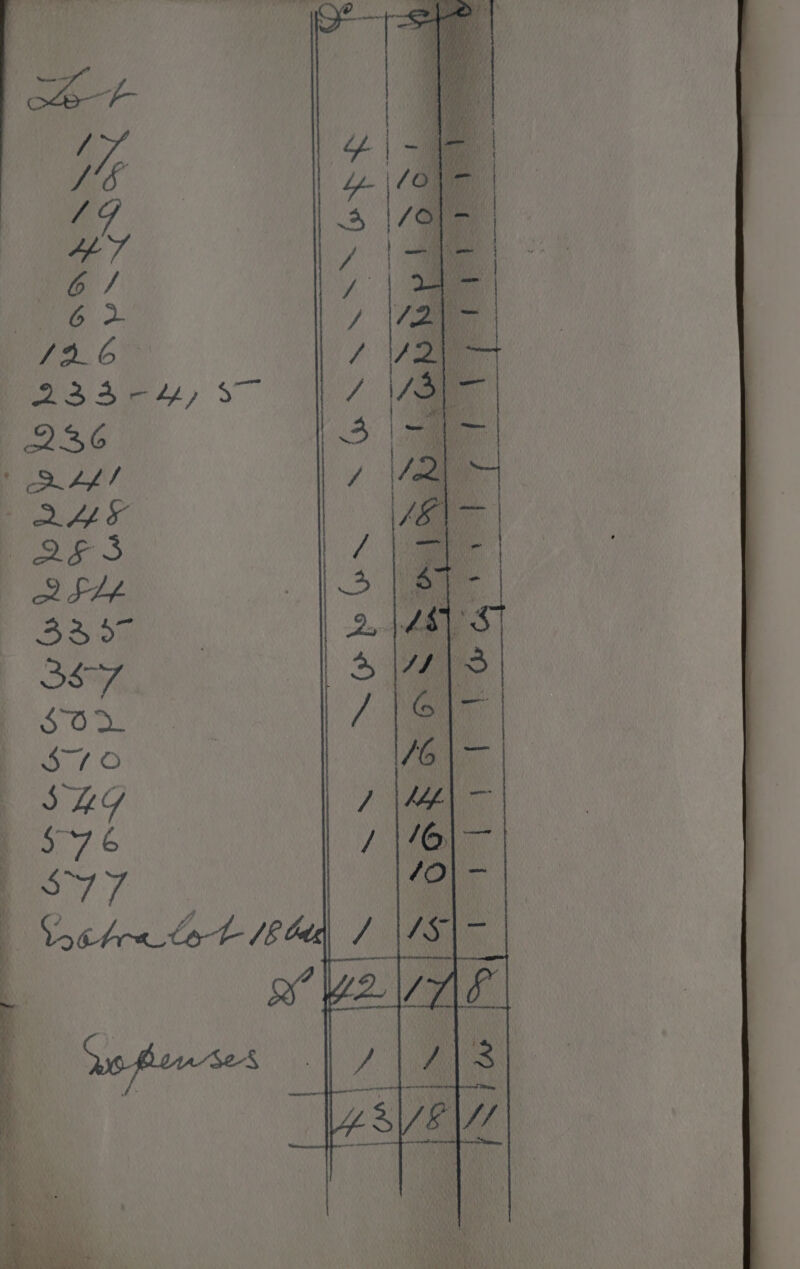 Lot
17 4 - -
18 4 10 -
19 3 10 -
47 1 - -
61 1 2 -
62 1 12 -
126 1 12 -
233-4, 5 1 13 -
236 3 - -
241 1 12 -
248 18 -
283 1 - -
284 3 5 -
335 2 15 5
357 3 11 3
502 1 6 -
510 16 -
549 1 14 -
576 1 16 -
577 10 -
Extra lot 18 1 15 -
42 17 8
Expenses 1 1 3
43 18 11